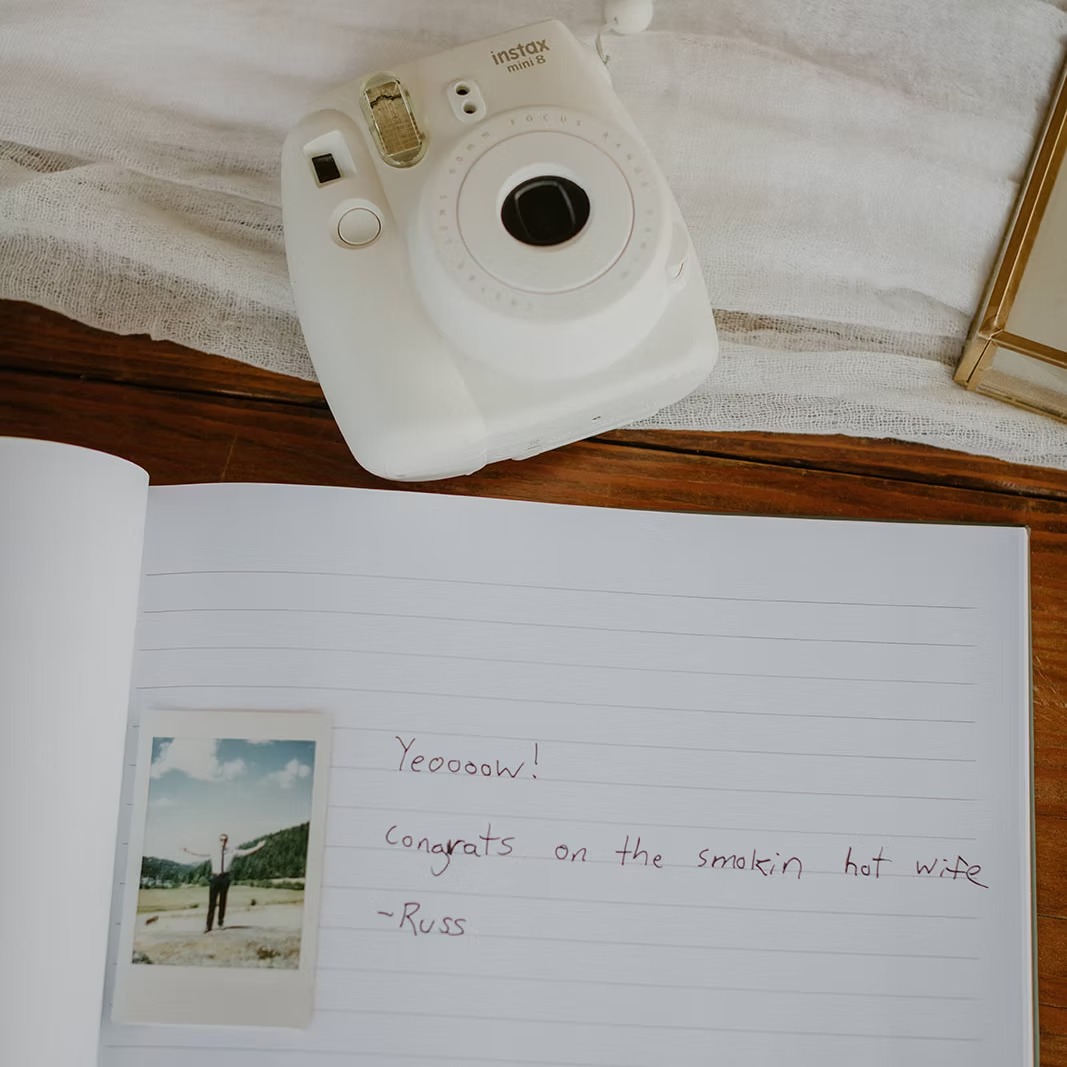 instax
mini 8
Yeoooow!
Congrats on the smokin hot wife
~Russ